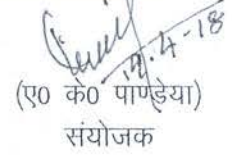 19.4-18
(ए0 के0 पाण्डेया)
संयोजक